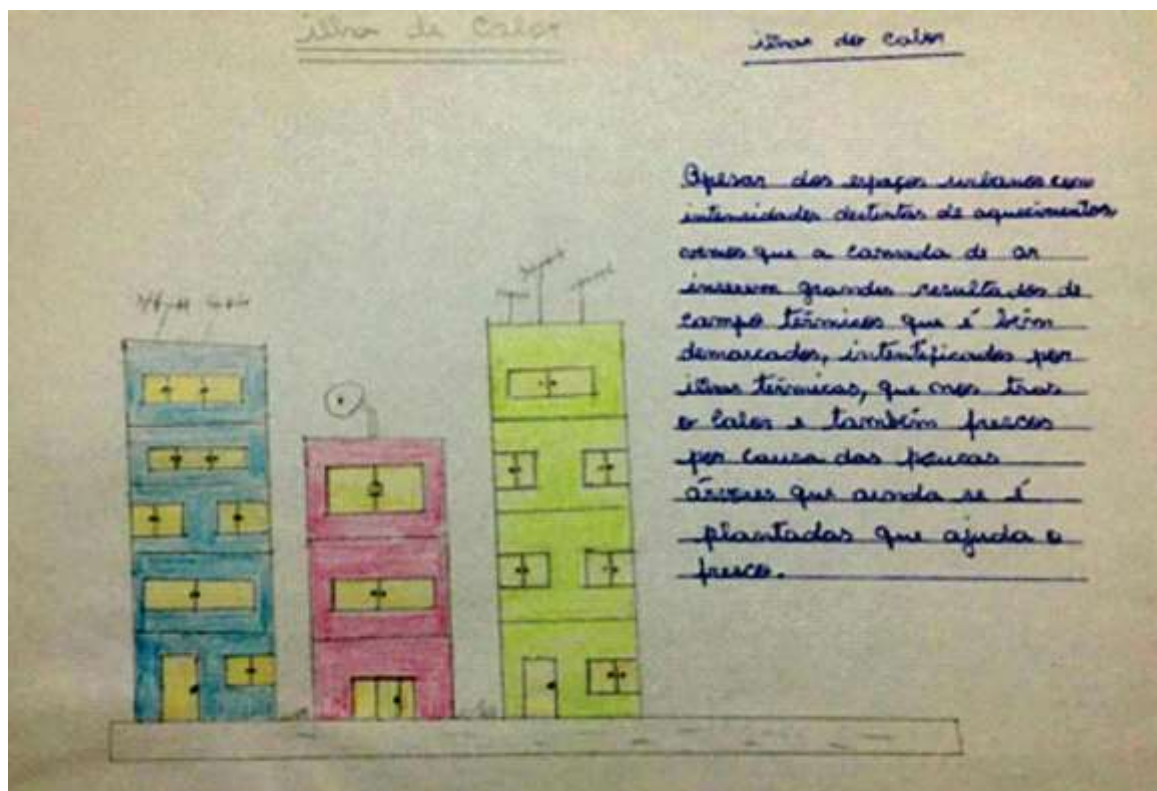 ilha de Calor
ilhas de calor
Apesar dos espaços urbanos com
intensidades distintas de aquecimentos
vemos que a camada de ar
inserem grandes resultados de
campo térmicos que é bem
demarcados, intentificados por
ilhas térmicas, que nos tras
o Calor e também frescos
por causa das poucas
árvores que aonda se é
plantadas que ajuda o
fresco.